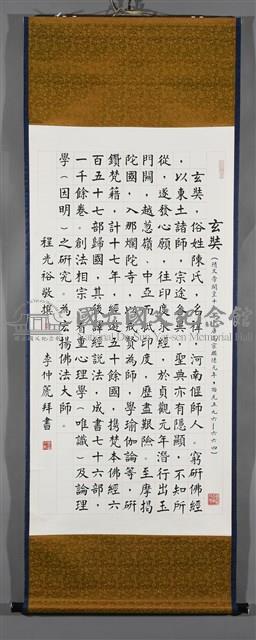 玄奘(隋文帝開皇十六年—唐高宗麟德元年,西元五九六—六六四)
玄奘,俗姓陳氏,名禕,河南偃師人。窮研佛經
,以東土諸師,宗途各異,聖典亦有隱顯,不知所
從,遂發心願,往印度求經,於貞觀元年潛行出玉
門關,越葱嶺、中亞而印度,歷盡艱險。至摩揭
陀國,入那爛陀寺,以戒賢為師,學瑜伽論等,研
鑽梵籍,計十七年,經遊五十餘國,攜梵本佛經六
百五十七部歸國,其後譯經說法,成書七十六部
一千餘卷。創法相宗,着重心理學(唯識)及論理
學(因明)之研究。為宏揚佛法大師。
程光裕敬撰 李仲篪拜書
國立國父紀念館
National Dr. Sun Yat-sen Memorial Hall